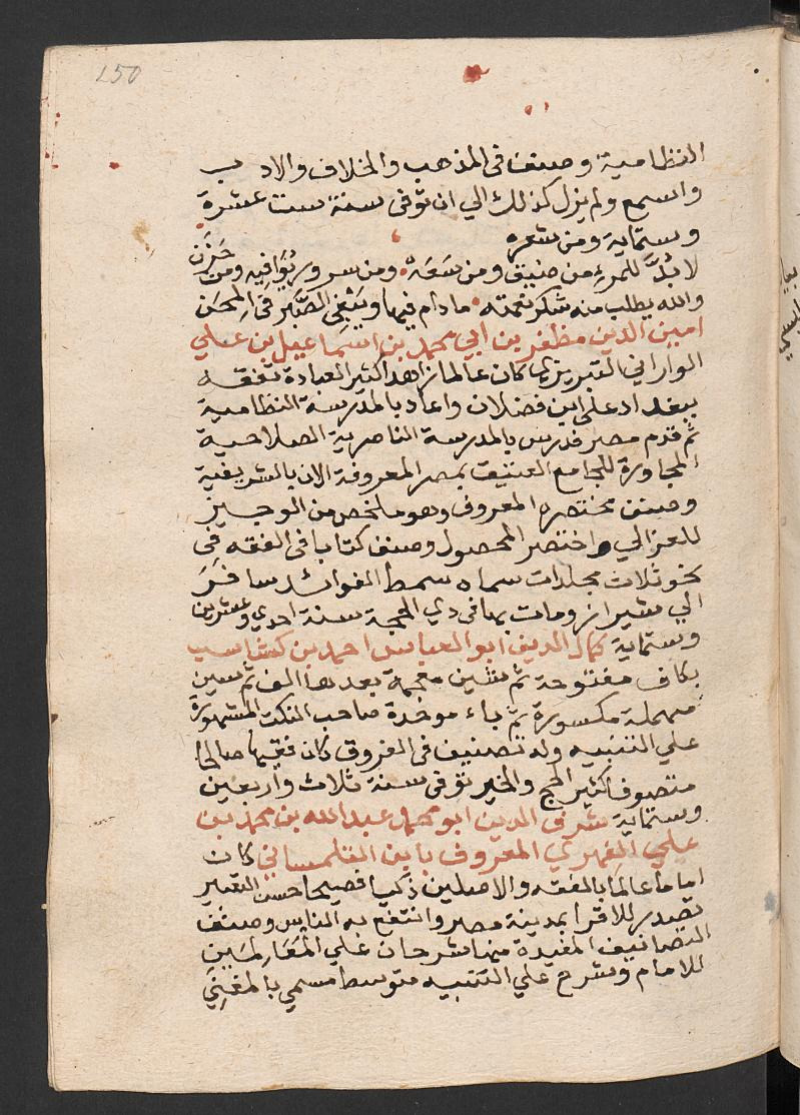 150
النظامية وصنف في المذهب والخلاف والادب
واسمع ولم يزل كذلك الي ان توفي سنة ست عشرة
وستماية ومن شعره
لا بُدَّ للمرء من ضيق ومن سَعَة ومن سرور يُوَافيه ومن حَزَن
والله يطلب منه شكر نعمته ما دام فيها ويبغي الصَّبر في المحن
امين الدين مظفر بن ابي محمد بن اسماعيل بن علي
الواراني التبريزي كان عالما زاهدا كثير العبادة تفقه
ببغداد علي ابن فضلان واعاد بالمدرسة النظامية
ثم قدم مصر فدرس بالمدرسة الناصرية الصلاحية
المجاورة للجامع العتيق بمصر المعروفة الان بالشريفية
وصنف مختصره المعروف وهو ملخص من الوجيز
للغزالي واختصر المحصول وصنف كتابا في الفقه في
نحو ثلاث مجلدات سماه سمط الفوائد سافر
الي شيراز ومات بها في ذي الحجة سنة احدي وعشرين
وستماية كمال الدين ابو العباس احمد بن كشاسب
بكاف مفتوحة ثم شين معجمة بعدها الف ثم سين
مهملة مكسورة ثم باء موحدة صاحب النكت المشهورة
علي التنبيه وله تصنيف في الفروق كان فقيها صالحا
متصوفا كثير الحج والخير توفي سنة ثلاث واربعين
وستماية شرف الدين ابو محمد عبد الله بن محمد بن
علي الفهري المعروف بابن التلمساني كان
اماما عالما بالفقه والاصلين ذكيا فصيحا حسن التعبير
تصدر للاقرا بمدينة مصر وانتفع به الناس وصنف
التصانيف المفيدة منها شرحان علي المَعَالمَين
للامام وشرح علي التنبيه متوسط مسمي بالمغني